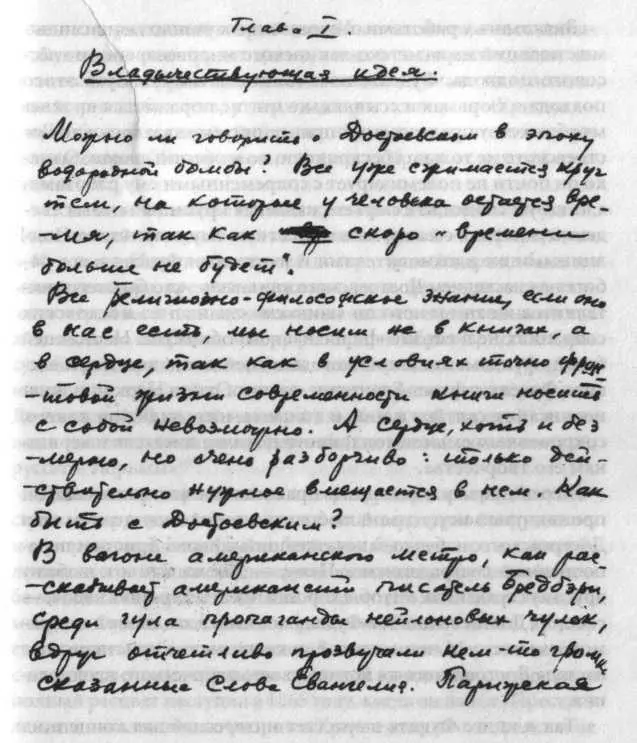 Глава I.
Владычествующая идея.
Можно ли говорить о Достоевском в эпоху
водородной бомбы? Все уже сжимается круг
тем, на которые у человека остается вре-
-мя, так как скоро "времени
больше не будет".
Все религиозно-философское знание, если оно
в нас есть, мы носим не в книгах, а
в сердце, так как в условиях точно фрон-
-товой жизни современности книги носить
с собой невозможно. А сердце, хотя и без
-мерно, но очень разборчиво: только дей-
-ствительно нужное вмещается в нем. Как
быть с Достоевским?
В вагоне американского метро, как рас-
-сказывает американский писатель Бредбэри,
среди гула пропаганды нейлоновых чулок,
вдруг отчетливо прозвучали кем-то громко
сказанные слова Евангелия. Парижская